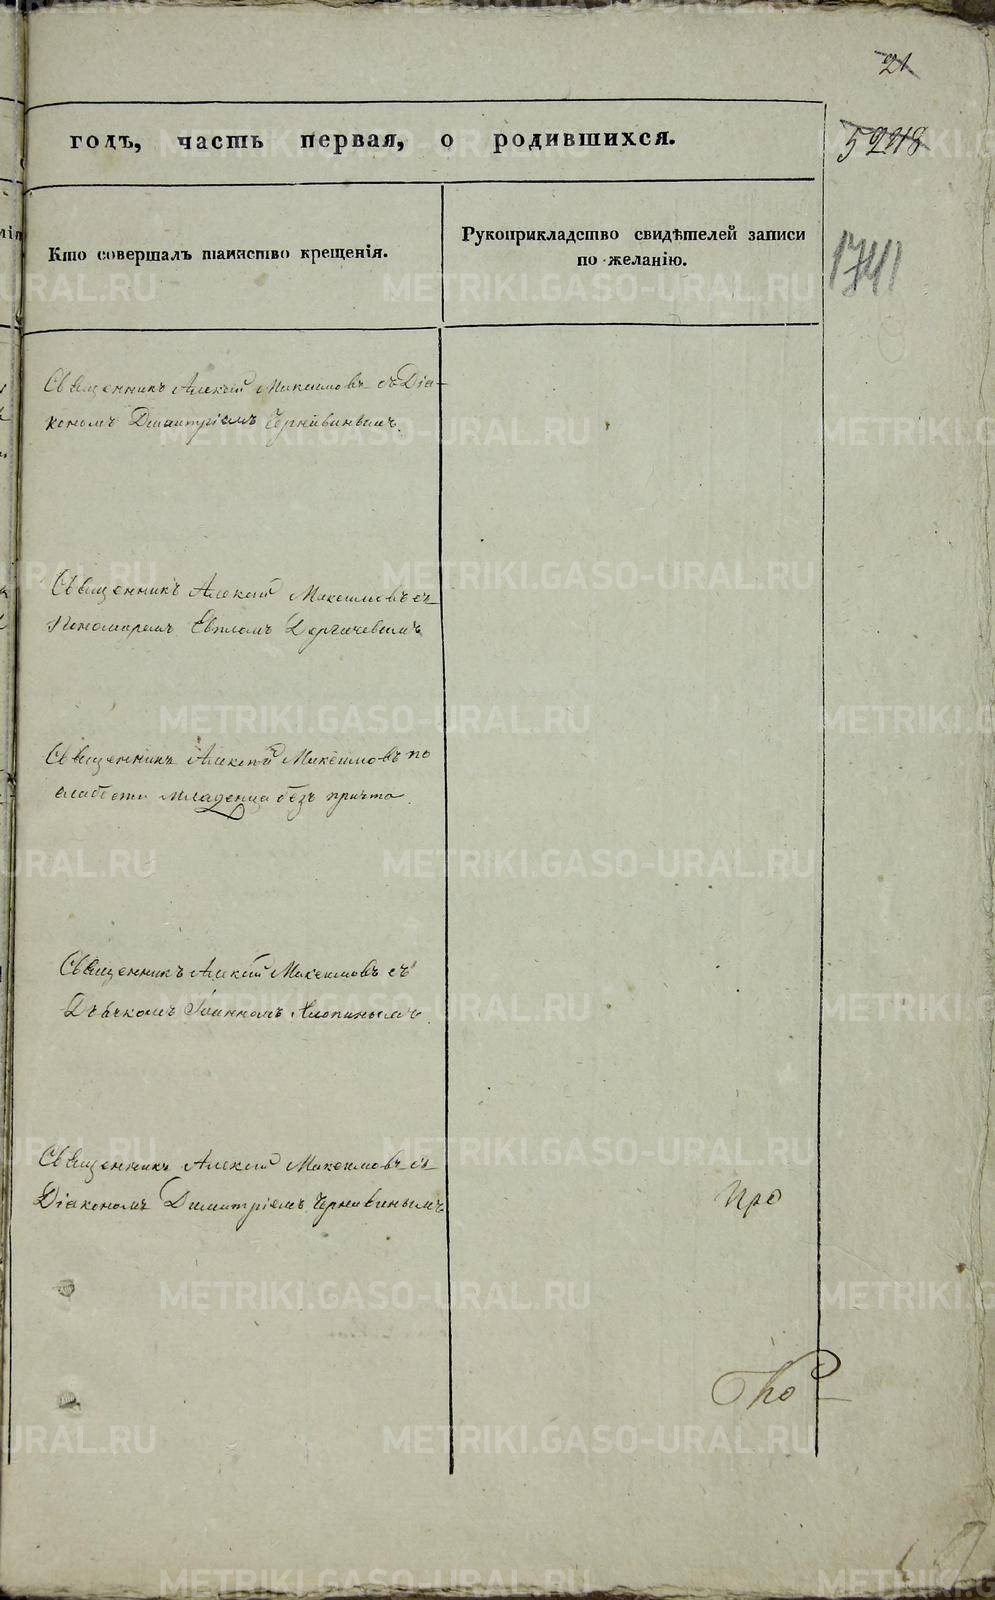 21
5248
годъ, часть первая, о родившихся.
1741
Кто совершалъ таинство крещенія.
Рукоприкладство свидѣтелей записи
по желанію.
Священникъ Алексій Максимовъ съ Діа-
кономъ Димитріемъ
Священникъ Алексій Максимовъ съ
Пономаремъ Евпломъ
Священникъ Алексій Максимовъ по
слабости младенца безъ причта.
Священникъ Алексій Максимовъ съ
Дьячкомъ Іоанномъ Хлопинымъ.
Священникъ Алексій Максимовъ съ
Діакономъ Димитріемъ
Про
METRIKI.GASO-URAL.RU